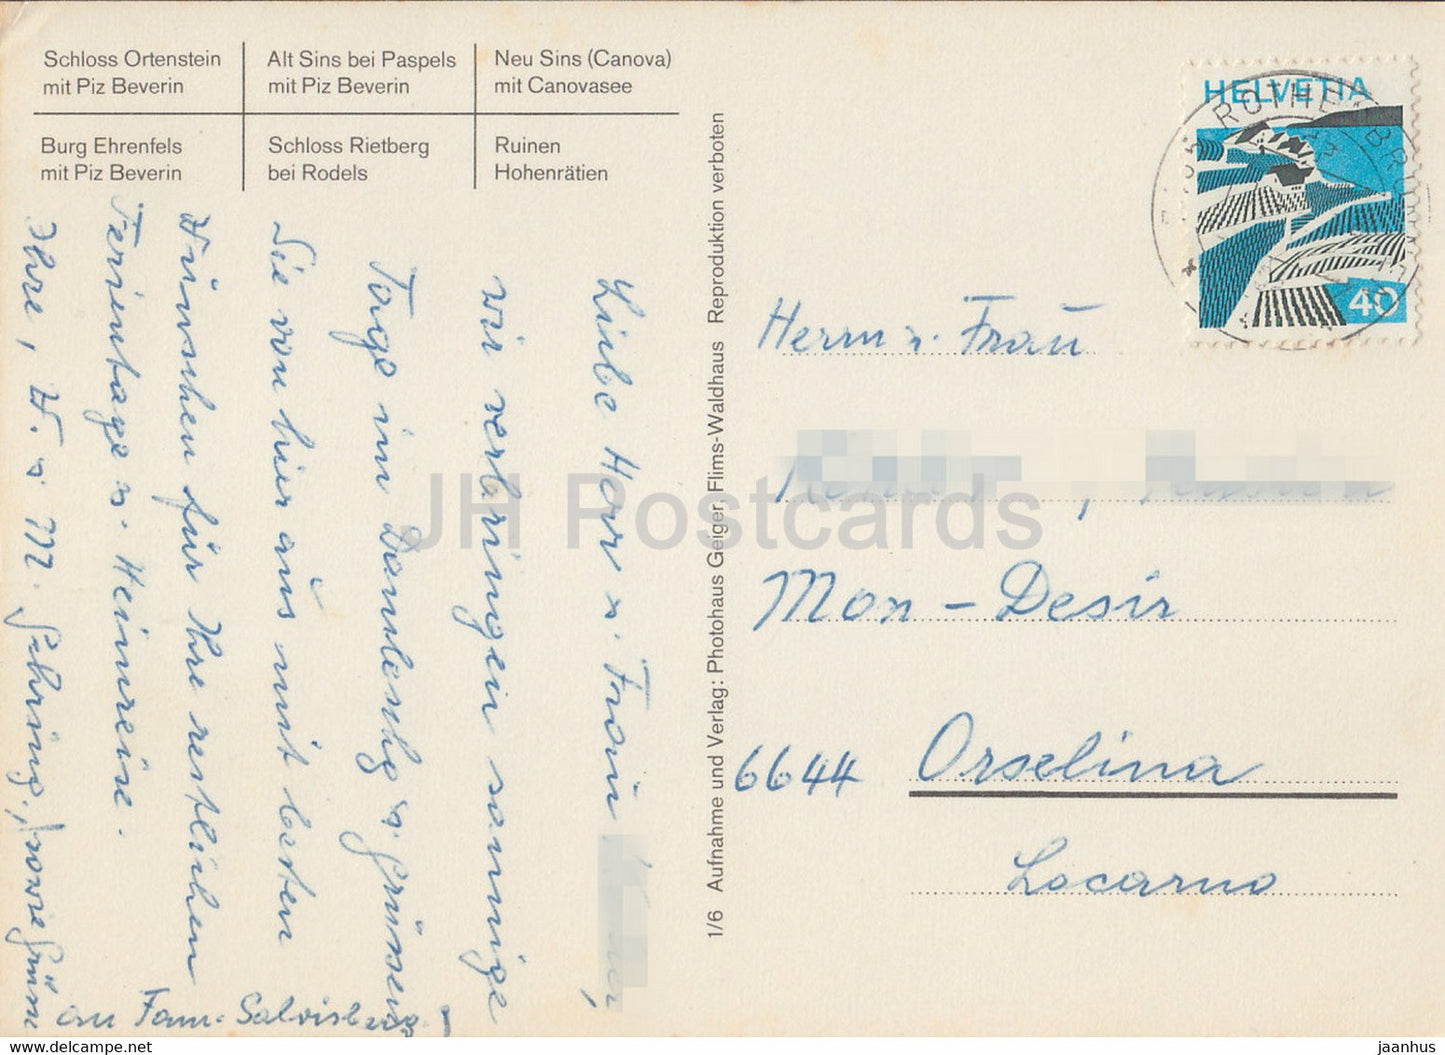 Schloss Ortenstein
mit Piz Beverin
Alt Sins bei Paspels
mit Piz Beverin
Neu Sins (Canova)
mit Canovasee
Burg Ehrenfels
mit Piz Beverin
Schloss Rietberg
bei Rodels
Ruinen
Hohenrätien
Liebe Herr u. Frau
wir verbringen sonnige
Tage im Domleschg u. grüssen
Sie von hier aus mit besten
Wünschen für Ihre restlichen
Ferientage u. Heimreise.
Ihre, W. u M. Gehring, sowie Grüsse
an Fam.
1/6 Aufnahme und Verlag: Photohaus Geiger, Flims-Waldhaus Reproduktion verboten
HELVETIA
40
Herrn u. Frau
Mon-Desir
6644 Orselina
Locarno
JH Postcards
www.jhpostcards.com
jaanhus